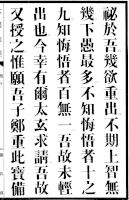 祕於吾幾欲重出不期上智無
幾下愚最多不知悔悟者十之
九知悔悟者百無一吾故未輕
出也今幸有爾太玄求請吾故
又授之惟願吾子鄭重此寶備